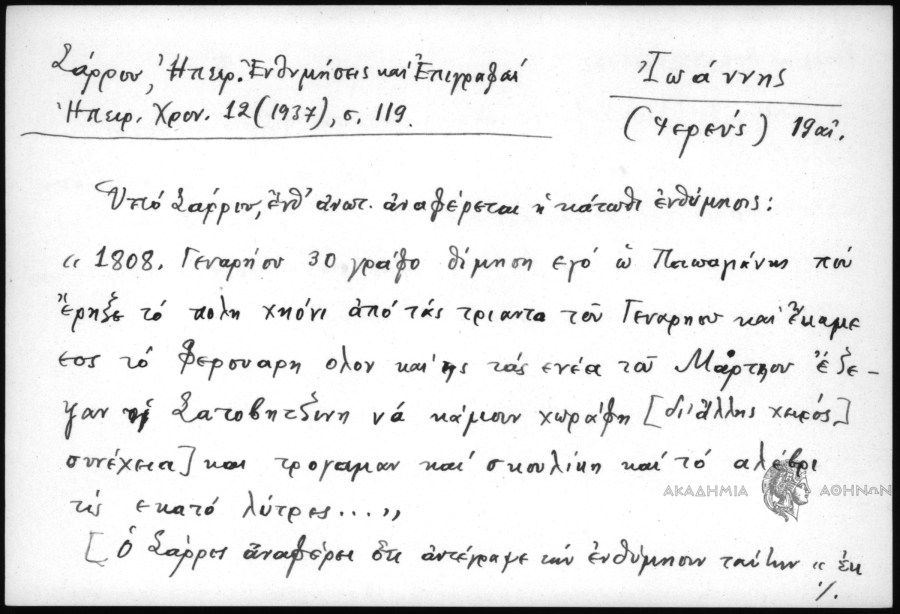 Σάρρου, Ἠπειρ. Ἐνθυμήσεις καὶ Ἐπιγραφαί
Ἠπειρ. Χρον. 12 (1937), σ. 119.
Ἰωάννης
(ἱερεύς) 19 αἰ.
Ὑπό Σάρρου, ἔνθ' ἀνωτ. ἀναφέρεται ἡ κάτωθι ἐνθύμησις:
« 1808. Γεναρήου 30 γράφο θίμηση εγό ὁ Παπαγιάνης πού
ἔρηξε τό πολη χηόνι ἀπό τάς τριαντα τοῦ Γεναρηου και ἔκαμε
εος τό Φερουαρη ολον και ης τάς ενέα τοῦ Μάρτηου ἔξε-
γαν οἱ Σατοβητζινη νά κάμουν χωράφη [δι' ἄλλης χειρός
συνέχεια] και τρογαμαν καί σκουλίκη καί τό αλέβρι
τίς εκατό λύτρες...»
[Ὁ Σάρρος ἀναφέρει ὅτι ἀντέγραψε τήν ἐνθύμησιν ταύτην « ἐκ
./.
ΑΚΑΔΗΜΙΑ ΑΘΗΝΩΝ